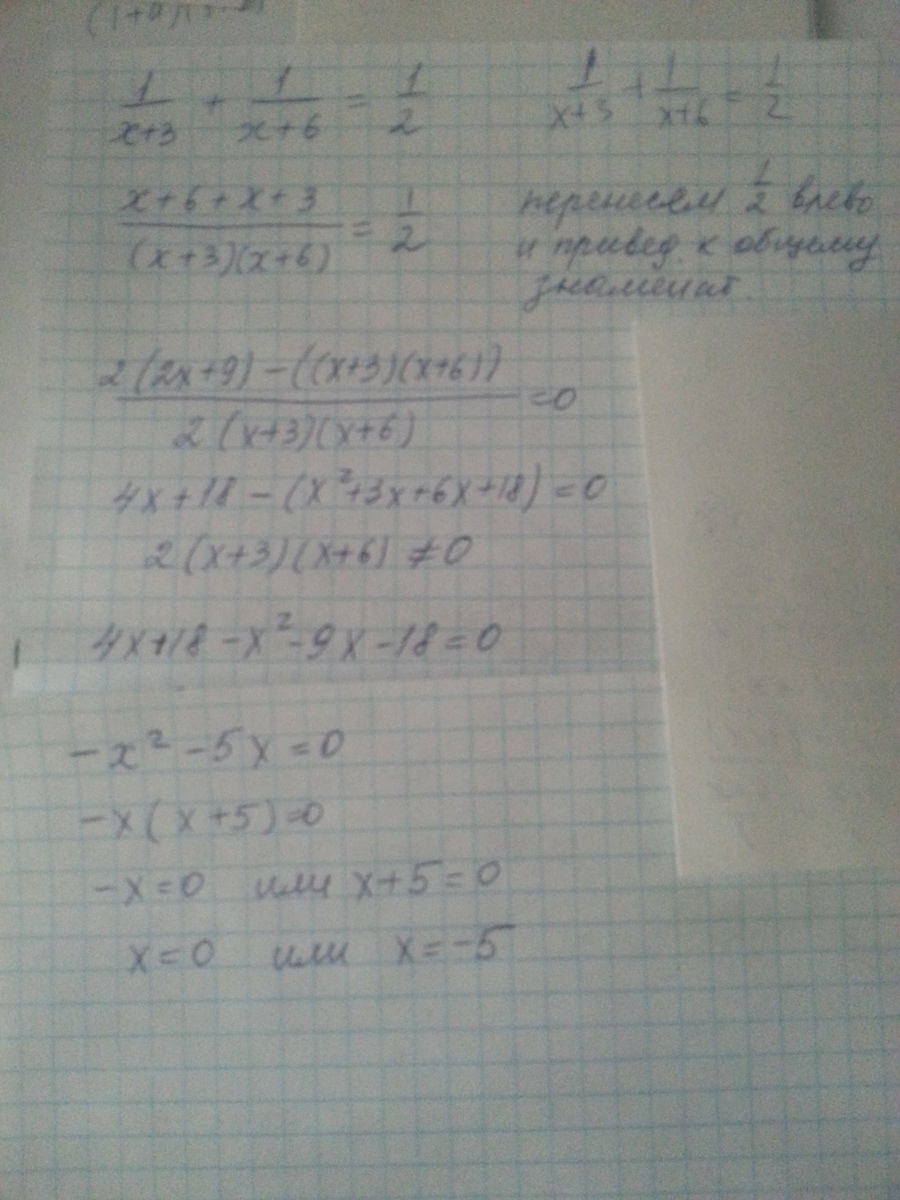 1/(x+3) + 1/(x+6) = 1/2
1/(x+3) + 1/(x+6) = 1/2
(x+6+x+3)/((x+3)(x+6)) = 1/2
перенесём 1/2 влево
и привед. к общему
знаменат.
(2(2x+9)-((x+3)(x+6)))/(2(x+3)(x+6)) = 0
4x+18-(x²+3x+6x+18)=0
2(x+3)(x+6)≠0
4x+18-x²-9x-18=0
-x²-5x=0
-x(x+5)=0
-x=0 или x+5=0
x=0 или x=-5